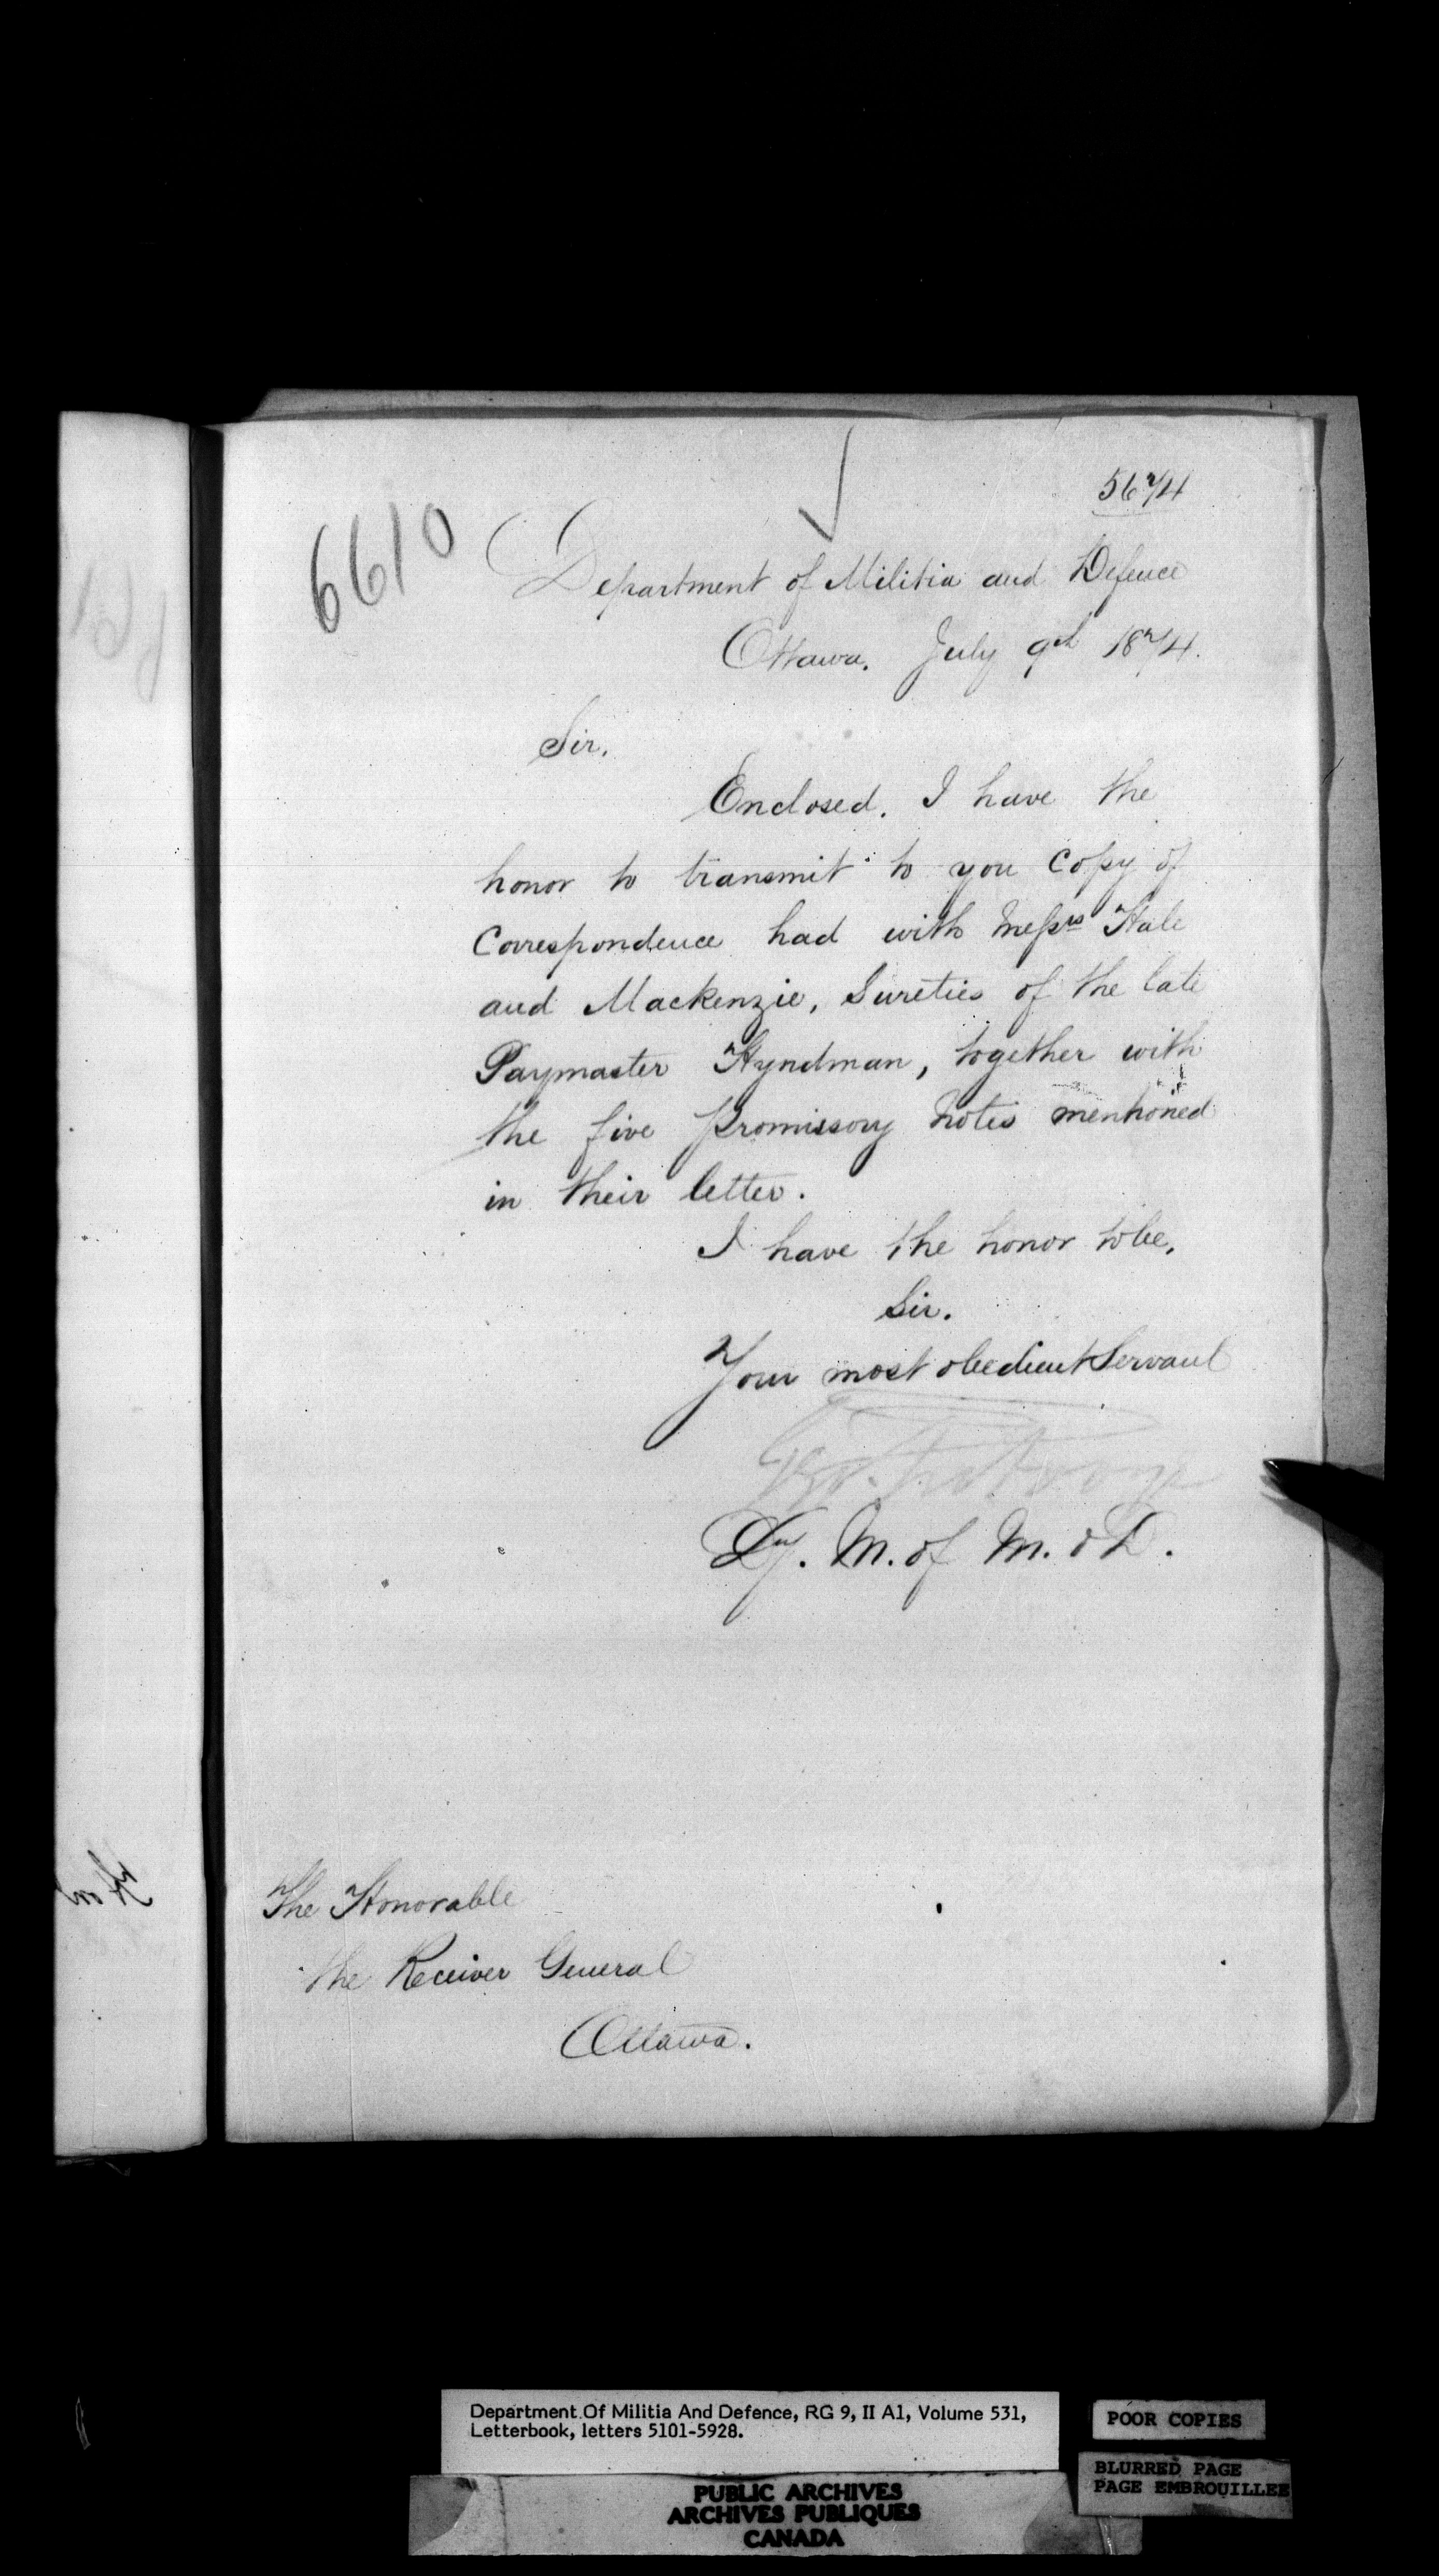 5674
6610
Department of Militia and Defence
Ottawa. July 9th 1874.
Sir.
Enclosed. I have the
honor to transmit to you Copy of
Correspondence had with Messrs Hale
and Mackenzie, Sureties of the late
Paymaster Hyndman, together with
the five promissory notes mentioned
in their letter.
I have the honor to be,
Sir.
Your most obedient Servant
Dy. M. of M. & D.
The Honorable
the Receiver General
Ottawa.
Department Of Militia And Defence, RG 9, II A1, Volume 531,
Letterbook, letters 5101-5928.
POOR COPIES
BLURRED PAGE
PAGE EMBROUILLEE
PUBLIC ARCHIVES
ARCHIVES PUBLIQUES
CANADA